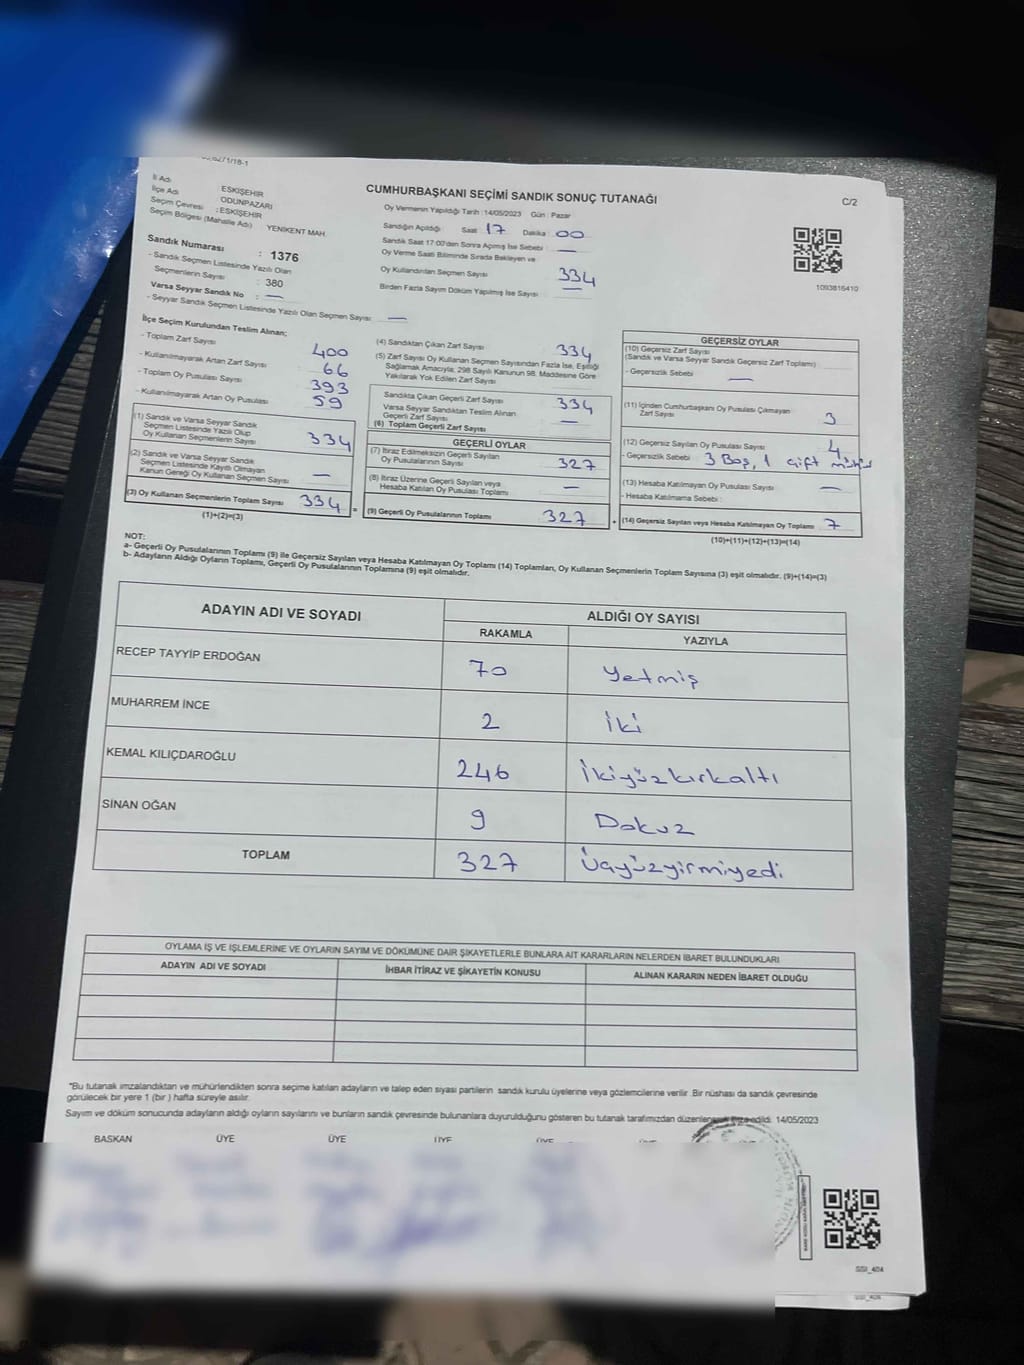 CUMHURBAŞKANI SEÇİMİ SANDIK SONUÇ TUTANAĞI
C/2
İl Adı ESKİŞEHİR
İlçe Adı ODUNPAZARI
Seçim Çevresi : ESKİŞEHİR
Seçim Bölgesi (Mahalle Adı) YENIKENT MAH.
Sandık Numarası : 1376
- Sandık Seçmen Listesinde Yazılı Olan
Seçmenlerin Sayısı : 380
Varsa Seyyar Sandık No : —
- Seyyar Sandık Seçmen Listesinde Yazılı Olan Seçmen Sayısı : —
Oy Vermenin Yapıldığı Tarih : 14/05/2023 Gün : Pazar
Sandığın Açıldığı Saat 17 Dakika 00
Sandık Saat 17:00'den Sonra Açılmış İse Sebebi : —
Oy Verme Saati Bitiminde Sırada Bekleyen ve
Oy Kullandırılan Seçmen Sayısı 334
Birden Fazla Sayım Döküm Yapılmış İse Sayısı : —
1093816410
İlçe Seçim Kurulundan Teslim Alınan;
- Toplam Zarf Sayısı 400
- Kullanılmayarak Artan Zarf Sayısı 66
- Toplam Oy Pusulası Sayısı 393
- Kullanılmayarak Artan Oy Pusulası 59
(1) Sandık ve Varsa Seyyar Sandık
Seçmen Listesinde Yazılı Olup
Oy Kullanan Seçmenlerin Sayısı 334
(2) Sandık ve Varsa Seyyar Sandık
Seçmen Listesinde Kayıtlı Olmayan
Kanun Gereği Oy Kullanan Seçmen Sayısı —
(3) Oy Kullanan Seçmenlerin Toplam Sayısı 334 =
(1)+(2)=(3)
(4) Sandıktan Çıkan Zarf Sayısı 334
(5) Zarf Sayısı Oy Kullanan Seçmen Sayısından Fazla İse, Eşitliği
Sağlamak Amacıyla, 298 Sayılı Kanunun 98. Maddesine Göre
Yakılarak Yok Edilen Zarf Sayısı —
Sandıkta Çıkan Geçerli Zarf Sayısı 334
Varsa Seyyar Sandıktan Teslim Alınan
Geçerli Zarf Sayısı —
(6) Toplam Geçerli Zarf Sayısı
GEÇERLİ OYLAR
(7) İtiraz Edilmeksizin Geçerli Sayılan
Oy Pusulalarının Sayısı 327
(8) İtiraz Üzerine Geçerli Sayılan veya
Hesaba Katılan Oy Pusulası Toplamı —
(9) Geçerli Oy Pusulalarının Toplamı 327 +
GEÇERSİZ OYLAR
(10) Geçersiz Zarf Sayısı
(Sandık ve Varsa Seyyar Sandık Geçersiz Zarf Toplamı)
- Geçersizlik Sebebi : —
(11) İçinden Cumhurbaşkanı Oy Pusulası Çıkmayan
Zarf Sayısı 3
(12) Geçersiz Sayılan Oy Pusulası Sayısı 4
- Geçersizlik Sebebi : 3 Boş, 1 çift mühür
(13) Hesaba Katılmayan Oy Pusulası Sayısı —
- Hesaba Katılmama Sebebi :
(14) Geçersiz Sayılan veya Hesaba Katılmayan Oy Toplamı 7
(10)+(11)+(12)+(13)=(14)
NOT:
a- Geçerli Oy Pusulalarının Toplamı (9) ile Geçersiz Sayılan veya Hesaba Katılmayan Oy Toplamı (14) Toplamları, Oy Kullanan Seçmenlerin Toplam Sayısına (3) eşit olmalıdır. (9)+(14)=(3)
b- Adayların Aldığı Oyların Toplamı, Geçerli Oy Pusulalarının Toplamına (9) eşit olmalıdır.
ADAYIN ADI VE SOYADI ALDIĞI OY SAYISI
RAKAMLA YAZIYLA
RECEP TAYYİP ERDOĞAN 70 Yetmiş
MUHARREM İNCE 2 İki
KEMAL KILIÇDAROĞLU 246 İkiyüzkırkaltı
SİNAN OĞAN 9 Dokuz
TOPLAM 327 Üçyüzyirmiyedi
OYLAMA İŞ VE İŞLEMLERİNE VE OYLARIN SAYIM VE DÖKÜMÜNE DAİR ŞİKAYETLERLE BUNLARA AİT KARARLARIN NELERDEN İBARET BULUNDUKLARI
ADAYIN ADI VE SOYADI İHBAR İTİRAZ VE ŞİKAYETİN KONUSU ALINAN KARARIN NEDEN İBARET OLDUĞU
*Bu tutanak imzalandıktan ve mühürlendikten sonra seçime katılan adayların ve talep eden siyasi partilerin sandık kurulu üyelerine veya gözlemcilerine verilir. Bir nüshası da sandık çevresinde
görülecek bir yere 1 (bir ) hafta süreyle asılır.
Sayım ve döküm sonucunda adayların aldığı oyların sayılarını ve bunların sandık çevresinde bulunanlara duyurulduğunu gösteren bu tutanak tarafımızdan düzenlenerek imza edildi. 14/05/2023
BAŞKAN ÜYE ÜYE ÜYE ÜYE ÜYE
SSI_404